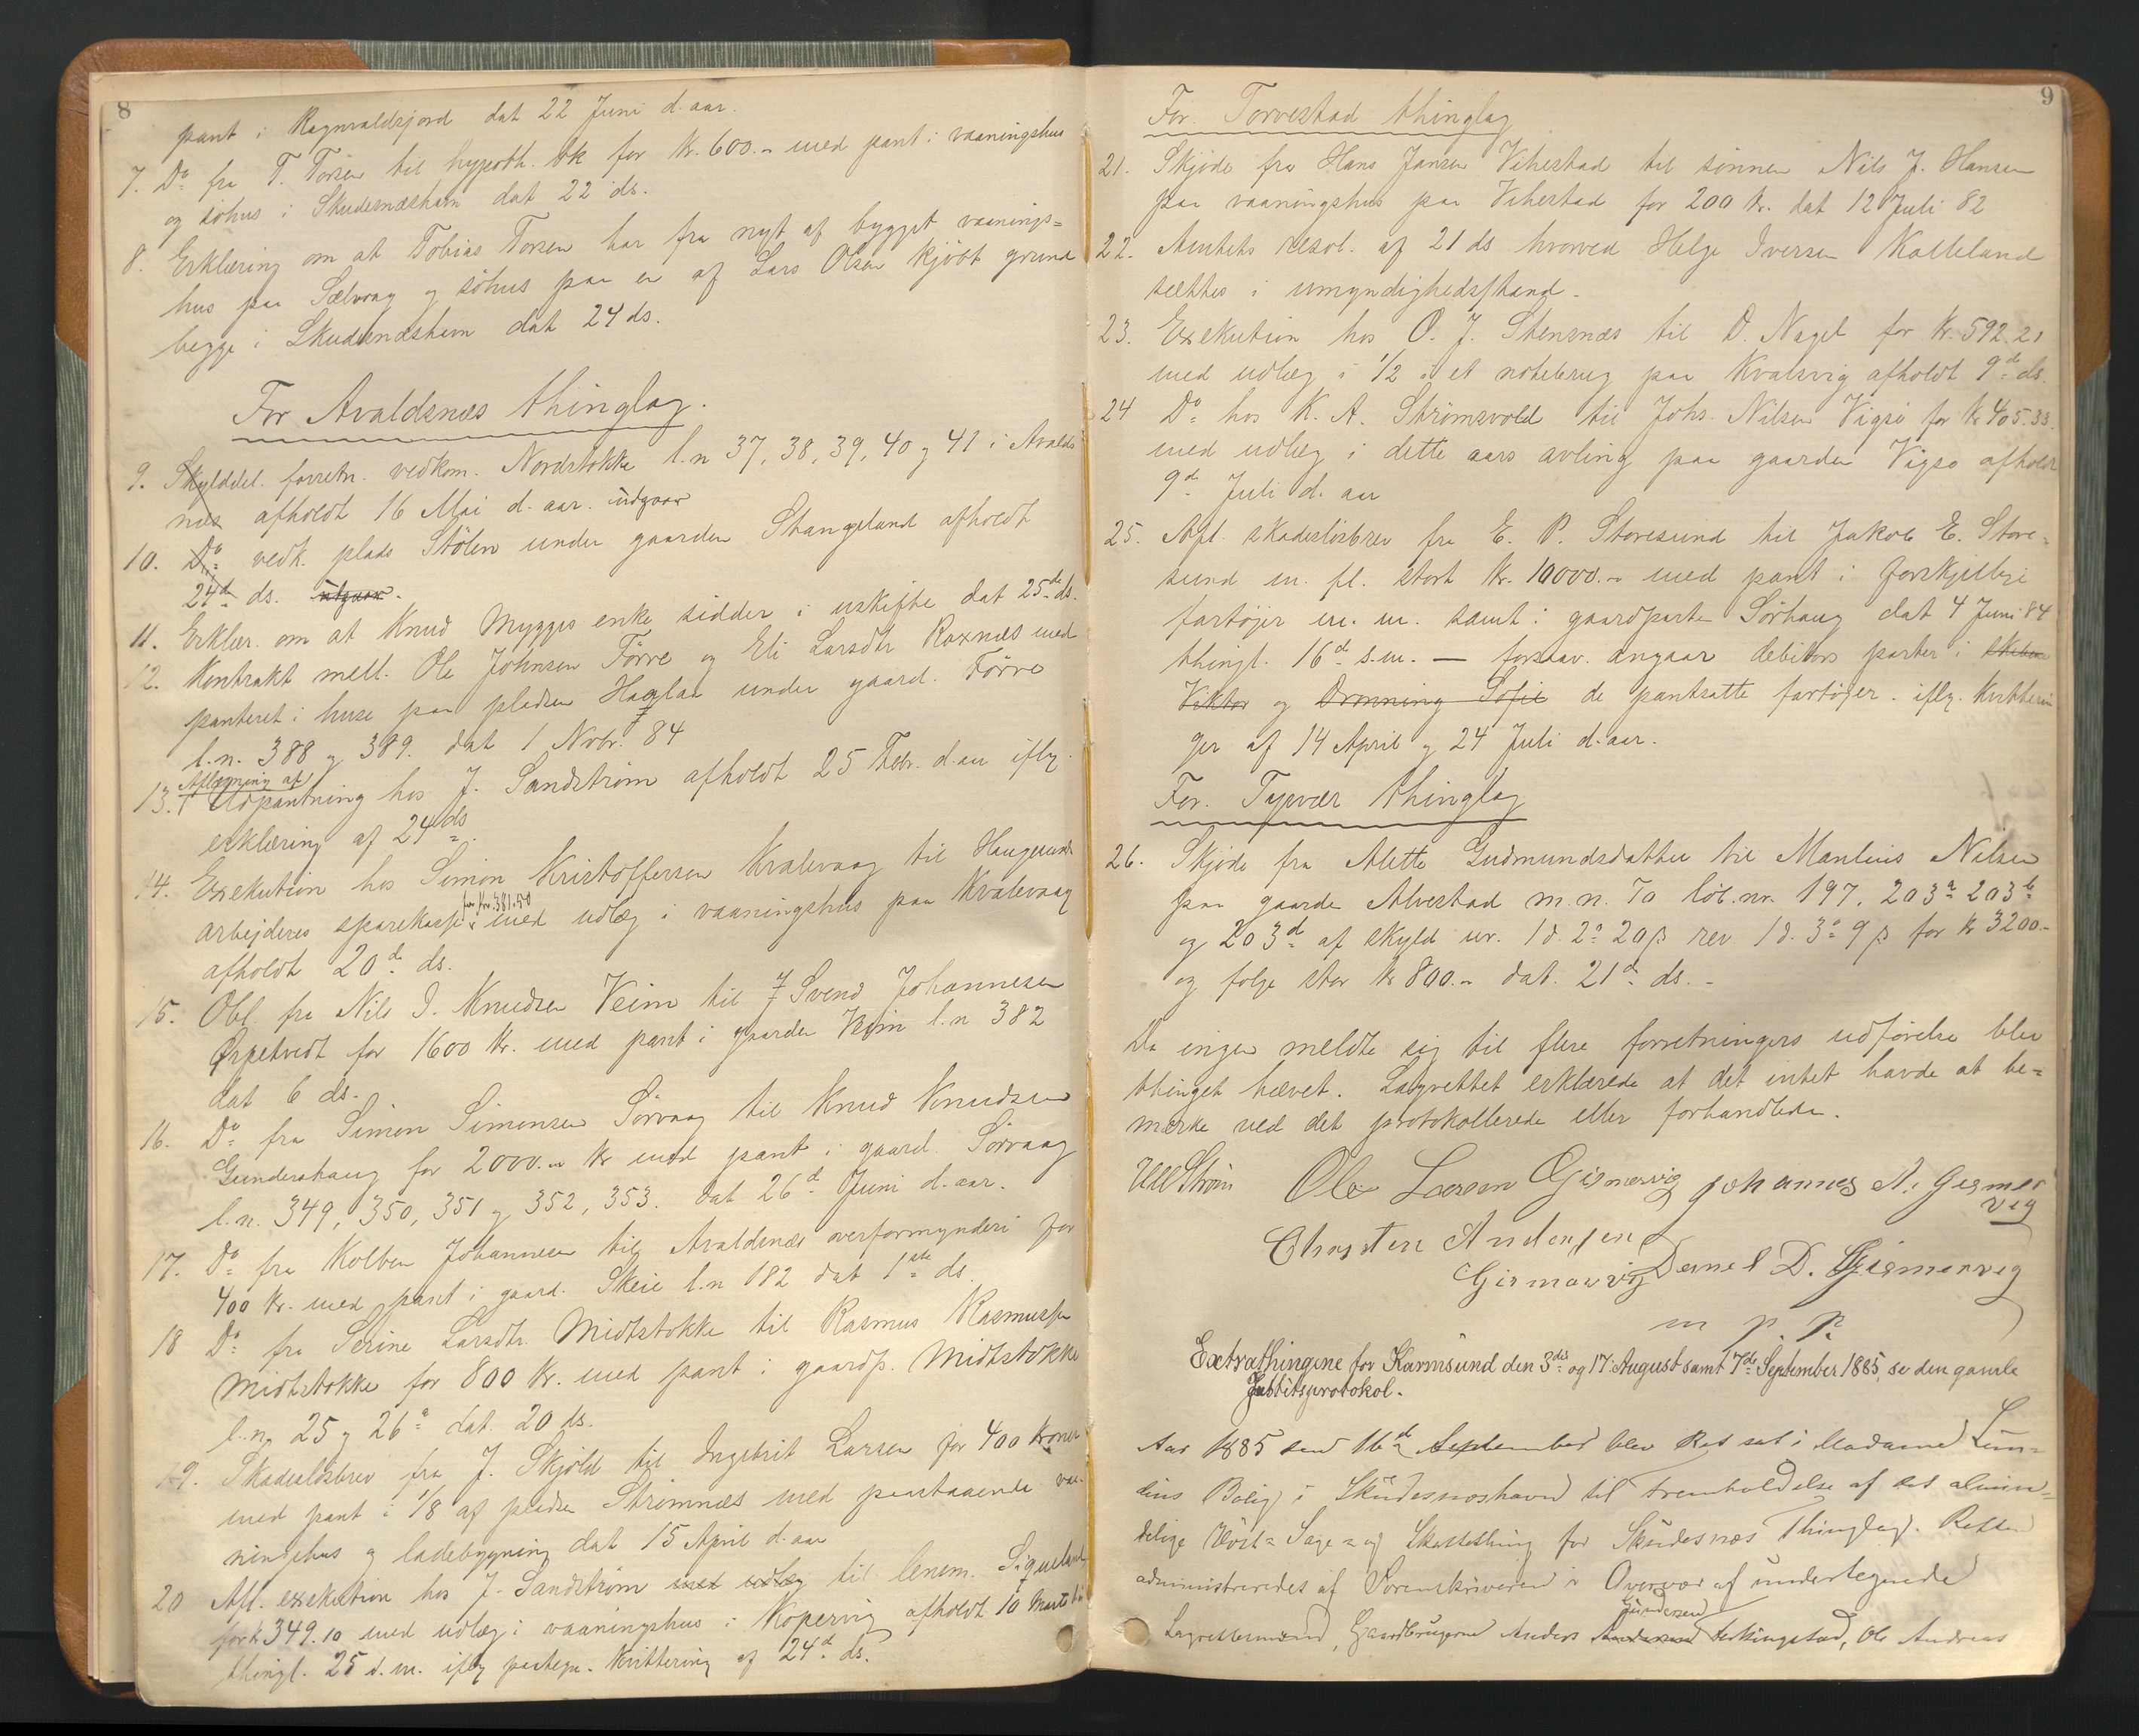 8
pant i Ragnvaldsjord dat 22 Juni d. aar.
7. Do fra T. Torsen til hypoth. bk for Kr. 600.- med pant i vaaningshus
og söhus i Skudesnæshavn dat 22 ds.
8. Erklæring om at Tobias Torsen har fra nyt af bygget vaanings=
hus paa Sælvaag og söhus paa en af Lars Olsen kjöbt grund
begge i Skudesnæshavn dat 24 ds.
For Avaldsnæs thinglag.
9. Skylddel. forretn. vedkom. Nordstokke l.n 37, 38, 39, 40 og 41 i Avalds
næs afholdt 16 Mai d. aar. udgaar
10. Do vedk. plads Stölen under gaarden Stangeland afholdt
24de ds. udgaar.
11. Erklær. om at Knud Mygges enke sidder i uskifte dat 25de ds.
12. Kontrakt mell. Ole Johnsen Förre og Eli Larsdtr Raxnæs med
panteret i huse paa pladsen Haglaa under gaard. Förre
l.n. 388 og 389. dat 1 Novbr. 84
Aflæsning af
13. Udpantning hos J. Sandström afholdt 25 Febr. d. aar iflg.
erklæring af 24 ds.
14. Exekution hos Simon Kristoffersen Kvalevaag til Haugesunds
for Kr. 381.50
arbejderes sparekasse med udlæg i vaaningshus paa Kvalevaag
afholdt 20de ds.
15. Obl. fra Nils I. Knudsen Veim til Svend Johannesen
Ørpetvedt for 1600 Kr. med pant i gaarden Veim l.n 382
dat 6 ds.
16. Do fra Simon Simonsen Sörvaag til Knud Knudsen
Gundershaug for 2000.- Kr med pant i gaard. Sörvaag
l.n. 349, 350, 351 og 352, 353. dat 26de Juni d. aar.
17. Do fra Kolben Johannesen til Avaldsnæs overformynderi for
400 Kr. med pant i gaard. Skeie l.n 182 dat 1ste ds.
18 Do fra Serine Larsdtr. Midtstokke til Rasmus Rasmussen
Midtstokke for 800 Kr. med pant i gaardp. Midtstokke
l.n. 25 og 26a dat. 20 ds.
19. Skadeslösbrev fra J. Skjöld til Ingebrit Larsen for 400 Kroner
med pant i 1/8 af pladsen Strömnæs med paastaaende vaa-
ningshus og ladebygning dat 15 April d. aar
20 Afl. exekution hos J. Sandström med udlæg til lensm. Sigueland
for k 349.10 med udlæg i vaaningshus i Kopervig afholdt 10 Marts
thingl. 25 s.m. iflg paategn. Kvittering af 24de ds.
9
For. Torvestad thinglag
21. Skjöde fra Hans Jansen Vihestad til sönnen Nils J. Hansen
paa vaaningshus paa Vihestad for 200 Kr. dat 12 Juli 82
22. Amtets resol. af 21 ds hvorved Helge Iversen Kolleland
sættes i umyndighedsstand.
23. Exekution hos O. J. Stensnæs til D. Nagel for Kr. 592.21
med udlæg i 1/2 i et notebrug paa Kvalsvig afholdt 9de ds.
24 Do hos K. A. Strömsvold til Johs. Nilsen Vigsö for Kr 405.33
med udlæg i dette aars avling paa gaarden Vigsö afholdt
9de Juli d. aar
25. Afl. skadeslösbrev fra E. P. Storesund til Jakob E. Store-
sund m. fl. stort Kr. 10000.- med pant i forskjellige
fartöjer m. m. samt i gaardparten Sörhaug dat 4 Juni 84
thingl. 16de s.m. — forsaav. angaar debitors parter i
Viktor og Dronning Sofie de pantsatte fartöjer. iflg. Kvitterin
ger af 14 April og 24 Juli d. aar.
For. Tysvær thinglag
26. Skjöde fra Alette Gudmundsdatter til Manlius Nilsen
paa gaarden Alvestad m.n. 70 löb.nr. 197, 203a 203b
og 203d af skyld ur. 1 d. 2 o 20 ß rev 1 d. 3 o 9 ß for Kr 3200.-
og følge stor Kr 800.- dat. 21de ds. -
Da ingen meldte sig til flere forretningers udförelse blev
thinget hævet. Lagrettet erklærede at det intet havde at be=
mærke ved det protokollerede eller forhandlede.
Ole Larsen Gismervig Johannes N. Gismer
vig
Christen Andersen
Gismervig Daniel D. Gismervig
m p. P.
Extrathingene for Karmsund den 3die og 17. August samt 7de September 1885, se den gamle
Justitsprotokol.
Aar 1885 den 16de September blev Ret sat i Madame Lun-
dins Bolig i Skudesnæshavn til Fremholdelse af det almin=
delige Höst= Sage= og Skattething for Skudesnæs Thinglag. Retten
administreredes af Sorenskriveren i Overvær af undertegnede
Gundersen
Lagrettesmænd, Gaardbrugerne Anders Andersen Ferkingstad, Ole Andreas